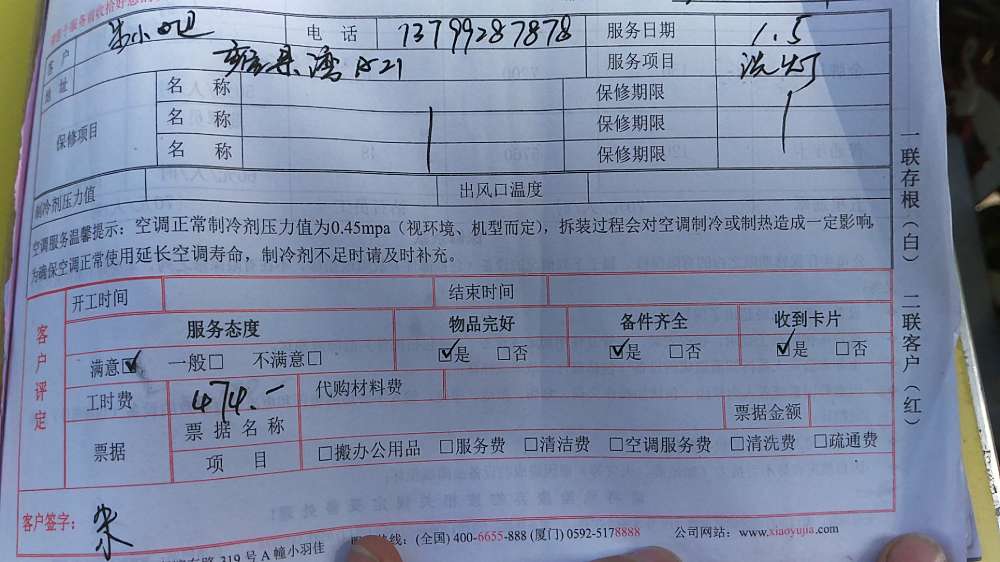 客户 朱小 电话 13799287878 服务日期 1.5
地址 湾 服务项目 洗灯
保修项目 名称 保修期限
名称 保修期限
名称 保修期限
制冷剂压力值 出风口温度
空调服务温馨提示:空调正常制冷剂压力值为0.45mpa(视环境、机型而定),拆装过程会对空调制冷或制热造成一定影响,
为确保空调正常使用延长空调寿命,制冷剂不足时请及时补充。
一联存根(白) 二联客户(红)
客户评定
开工时间 结束时间
服务态度 物品完好 备件齐全 收到卡片
满意☑ 一般□ 不满意□ ☑是 □否 ☑是 □否 ☑是 □否
工时费 474.- 代购材料费
票据 票据名称 票据金额
项目 □搬办公用品 □服务费 □清洁费 □空调服务费 □清洗费 □疏通费
客户签字: 朱
319号A幢小羽佳 热线:(全国)400-6655-888(厦门)0592-5178888 公司网站:www.xiaoyujia.com